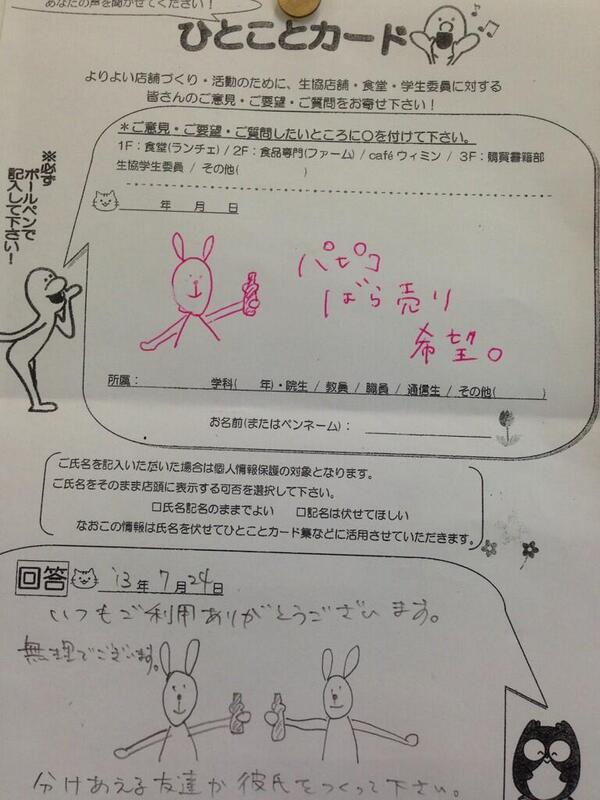 あなたの声を聞かせてください！
ひとことカード
よりよい店舗づくり・活動のために、生協店舗・食堂・学生委員に対する
皆さんのご意見・ご要望・ご質問をお寄せ下さい！
＊ご意見・ご要望・ご質問したいところに〇を付けて下さい。
1F：食堂(ランチェ) / 2F：食品専門(ファーム) / caféウィミン / 3F：購買書籍部
生協学生委員 / その他( )
※必ず
ボールペンで
記入して下さい！
年 月 日
パピコ
ばら売り
希望。
所属： 学科( 年)・院生 / 教員 / 職員 / 通信生 / その他( )
お名前(またはペンネーム)：
ご氏名を記入いただいた場合は個人情報保護の対象となります。
ご氏名をそのまま店頭に表示する可否を選択して下さい。
□氏名記名のままでよい □記名は伏せてほしい
なおこの情報は氏名を伏せてひとことカード集などに活用させていただきます。
回答 '13年 7月 24日
いつもご利用ありがとうございます。
無理でございます。
分けあえる友達か彼氏をつくって下さい。